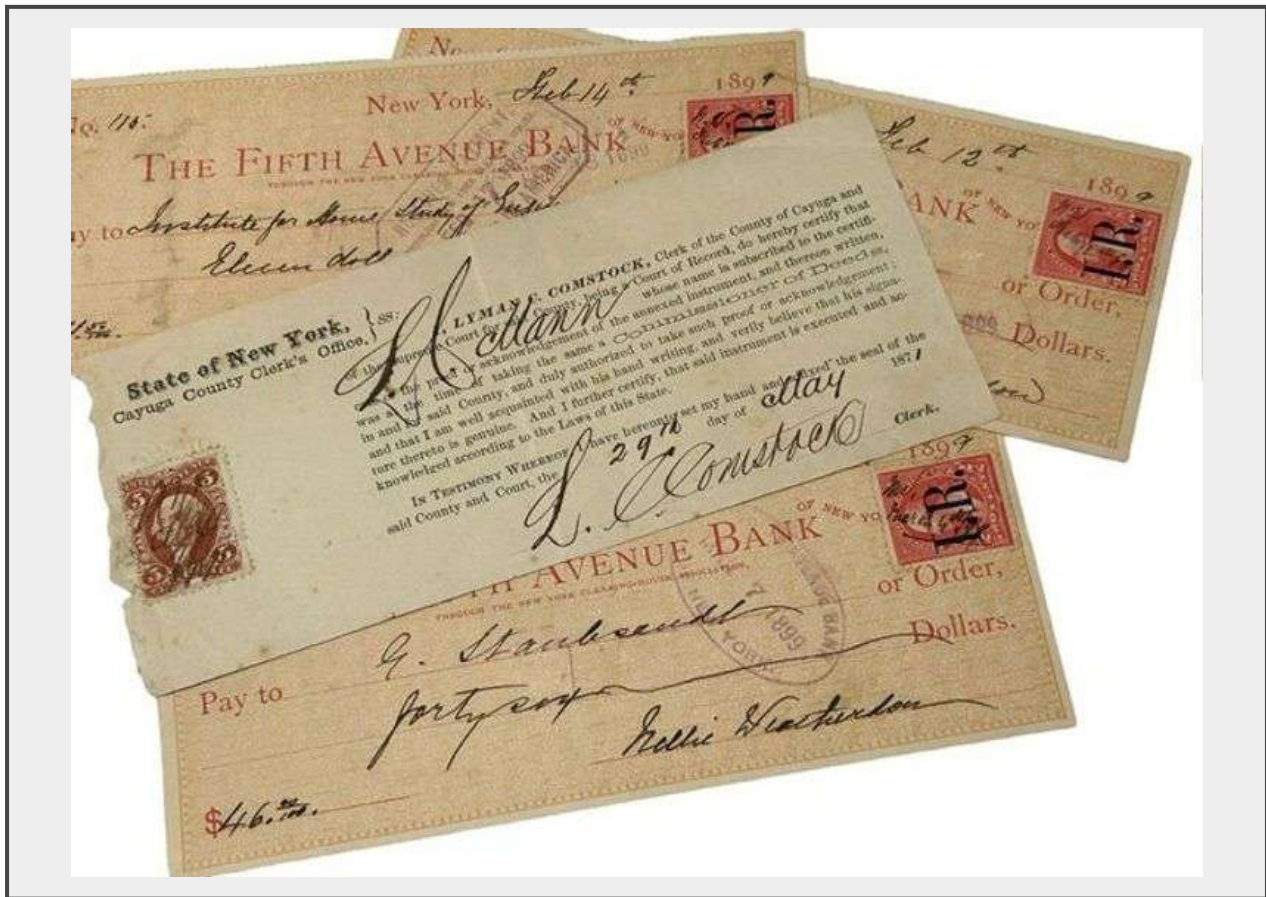 No.
No. 115.
New York, Feb 14th 1899
THE FIFTH AVENUE BANK OF NEW YO
THROUGH THE NEW YORK CLEARING
y to Institute for Home Study of
Eleven doll
Feb 12th 1899
ANK OF NEW YO
I.R.
I.R.
or Order,
Dollars.
State of New York, } SS:
Cayuga County Clerk's Office,
LYMAN C. COMSTOCK, Clerk of the County of Cayuga and
of the Supreme Court for County, being a Court of Record, do hereby certify that
L H Mann whose name is subscribed to the certifi-
the proof or acknowledgement of the annexed instrument, and thereon written,
was at the time of taking the same a Commissioner of Deeds,
in and said County, and duly authorized to take such proof or acknowledgement;
and that I am well acquainted with his hand writing, and verily believe that his signa-
ture thereto is genuine. And I further certify, that said instrument is executed and ac-
knowledged according to the Laws of this State.
IN TESTIMONY WHEREOF have hereunto set my hand and affixed the seal of the
said County and Court, the 29th day of May 1871
L. C. Comstock Clerk.
1899
I.R.
TH AVENUE BANK OF NEW YO
THROUGH THE NEW YORK CLEARING-HOUSE ASSOCIATION.
1899
Pay to G. Staubsandt or Order,
forty six Dollars.
$46.00/100. Nellie Weatherdon